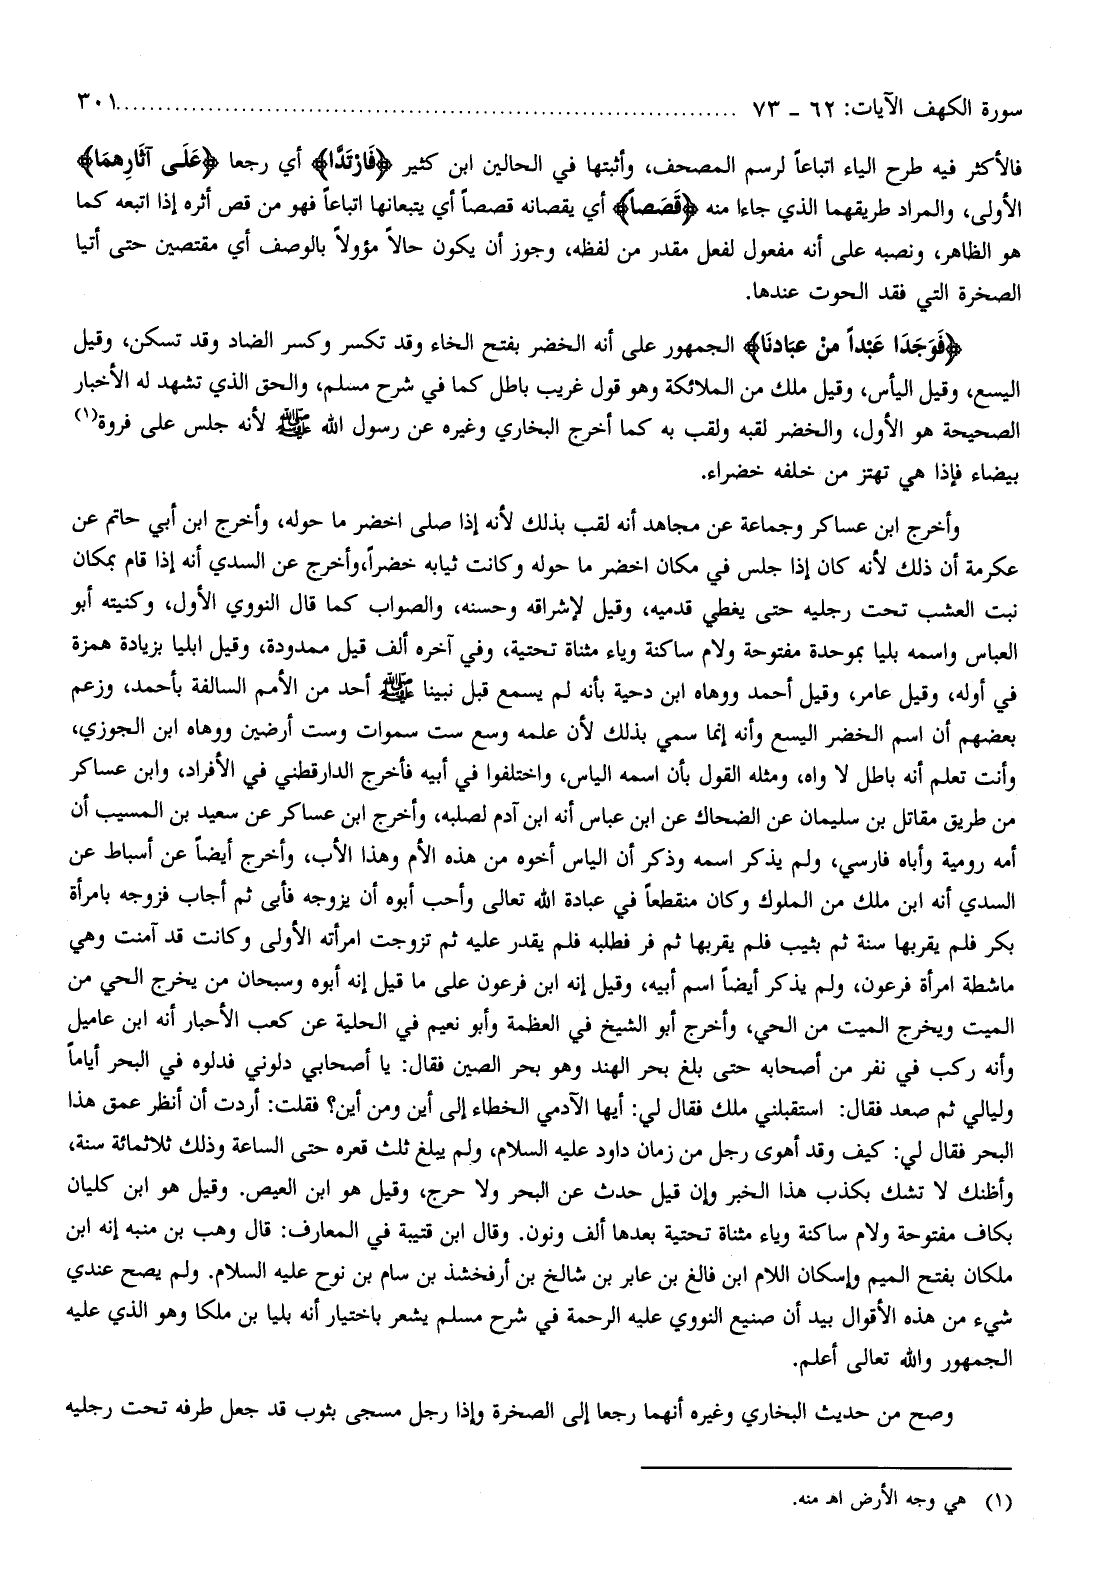 سورة الكهف الآيات: ٦٢ ـ ٧٣ ........................................................................... ٣٠١
فالأكثر فيه طرح الياء اتباعاً لرسم المصحف، وأثبتها في الحالين ابن كثير ﴿فَارْتَدَّا﴾ أي رجعا ﴿عَلَى آثَارِهِمَا﴾
الأولى، والمراد طريقهما الذي جاءا منه ﴿قَصَصاً﴾ أي يقصانه قصصاً أي يتبعانها اتباعاً فهو من قص أثره إذا اتبعه كما
هو الظاهر، ونصبه على أنه مفعول لفعل مقدر من لفظه، وجوز أن يكون حالاً مؤولاً بالوصف أي مقتصين حتى أتيا
الصخرة التي فقد الحوت عندها.
﴿فَوَجَدَا عَبْداً مِنْ عبَادنَا﴾ الجمهور على أنه الخضر بفتح الخاء وقد تكسر وكسر الضاد وقد تسكن، وقيل
اليسع، وقيل اليأس، وقيل ملك من الملائكة وهو قول غريب باطل كما في شرح مسلم، والحق الذي تشهد له الأخبار
الصحيحة هو الأول، والخضر لقبه ولقب به كما أخرج البخاري وغيره عن رسول الله ﷺ لأنه جلس على فروة(١)
بيضاء فإذا هي تهتز من خلفه خضراء.
وأخرج ابن عساكر وجماعة عن مجاهد أنه لقب بذلك لأنه إذا صلى اخضر ما حوله، وأخرج ابن أبي حاتم عن
عكرمة أن ذلك لأنه كان إذا جلس في مكان اخضر ما حوله وكانت ثيابه خضراً،وأخرج عن السدي أنه إذا قام بمكان
نبت العشب تحت رجليه حتى يغطي قدميه، وقيل لإشراقه وحسنه، والصواب كما قال النووي الأول، وكنيته أبو
العباس واسمه بليا بموحدة مفتوحة ولام ساكنة وياء مثناة تحتية، وفي آخره ألف قيل ممدودة، وقيل ابليا بزيادة همزة
في أوله، وقيل عامر، وقيل أحمد ووهاه ابن دحية بأنه لم يسمع قبل نبينا ﷺ أحد من الأمم السالفة بأحمد، وزعم
بعضهم أن اسم الخضر اليسع وأنه إنما سمي بذلك لأن علمه وسع ست سموات وست أرضين ووهاه ابن الجوزي،
وأنت تعلم أنه باطل لا واه، ومثله القول بأن اسمه الياس، واختلفوا في أبيه فأخرج الدارقطني في الأفراد، وابن عساكر
من طريق مقاتل بن سليمان عن الضحاك عن ابن عباس أنه ابن آدم لصلبه، وأخرج ابن عساكر عن سعيد بن المسيب أن
أمه رومية وأباه فارسي، ولم يذكر اسمه وذكر أن الياس أخوه من هذه الأم وهذا الأب، وأخرج أيضاً عن أسباط عن
السدي أنه ابن ملك من الملوك وكان منقطعاً في عبادة الله تعالى وأحب أبوه أن يزوجه فأبى ثم أجاب فزوجه بامرأة
بكر فلم يقربها سنة ثم بثيب فلم يقربها ثم فر فطلبه فلم يقدر عليه ثم تزوجت امرأته الأولى وكانت قد آمنت وهي
ماشطة امرأة فرعون، ولم يذكر أيضاً اسم أبيه، وقيل إنه ابن فرعون على ما قيل إنه أبوه وسبحان من يخرج الحي من
الميت ويخرج الميت من الحي، وأخرج أبو الشيخ في العظمة وأبو نعيم في الحلية عن كعب الأحبار أنه ابن عاميل
وأنه ركب في نفر من أصحابه حتى بلغ بحر الهند وهو بحر الصين فقال: يا أصحابي دلوني فدلوه في البحر أياماً
وليالي ثم صعد فقال: استقبلني ملك فقال لي: أيها الآدمي الخطاء إلى أين ومن أين؟ فقلت: أردت أن أنظر عمق هذا
البحر فقال لي: كيف وقد أهوى رجل من زمان داود عليه السلام، ولم يبلغ ثلث قعره حتى الساعة وذلك ثلاثمائة سنة،
وأظنك لا تشك بكذب هذا الخبر وإن قيل حدث عن البحر ولا حرج، وقيل هو ابن العيص. وقيل هو ابن كليان
بكاف مفتوحة ولام ساكنة وياء مثناة تحتية بعدها ألف ونون. وقال ابن قتيبة في المعارف: قال وهب بن منبه إنه ابن
ملكان بفتح الميم وإسكان اللام ابن فالغ بن عابر بن شالخ بن أرفخشذ بن سام بن نوح عليه السلام. ولم يصح عندي
شيء من هذه الأقوال بيد أن صنيع النووي عليه الرحمة في شرح مسلم يشعر باختيار أنه بليا بن ملكا وهو الذي عليه
الجمهور والله تعالى أعلم.
وصح من حديث البخاري وغيره أنهما رجعا إلى الصخرة وإذا رجل مسجى بثوب قد جعل طرفه تحت رجليه
(١) هي وجه الأرض اهـ منه.